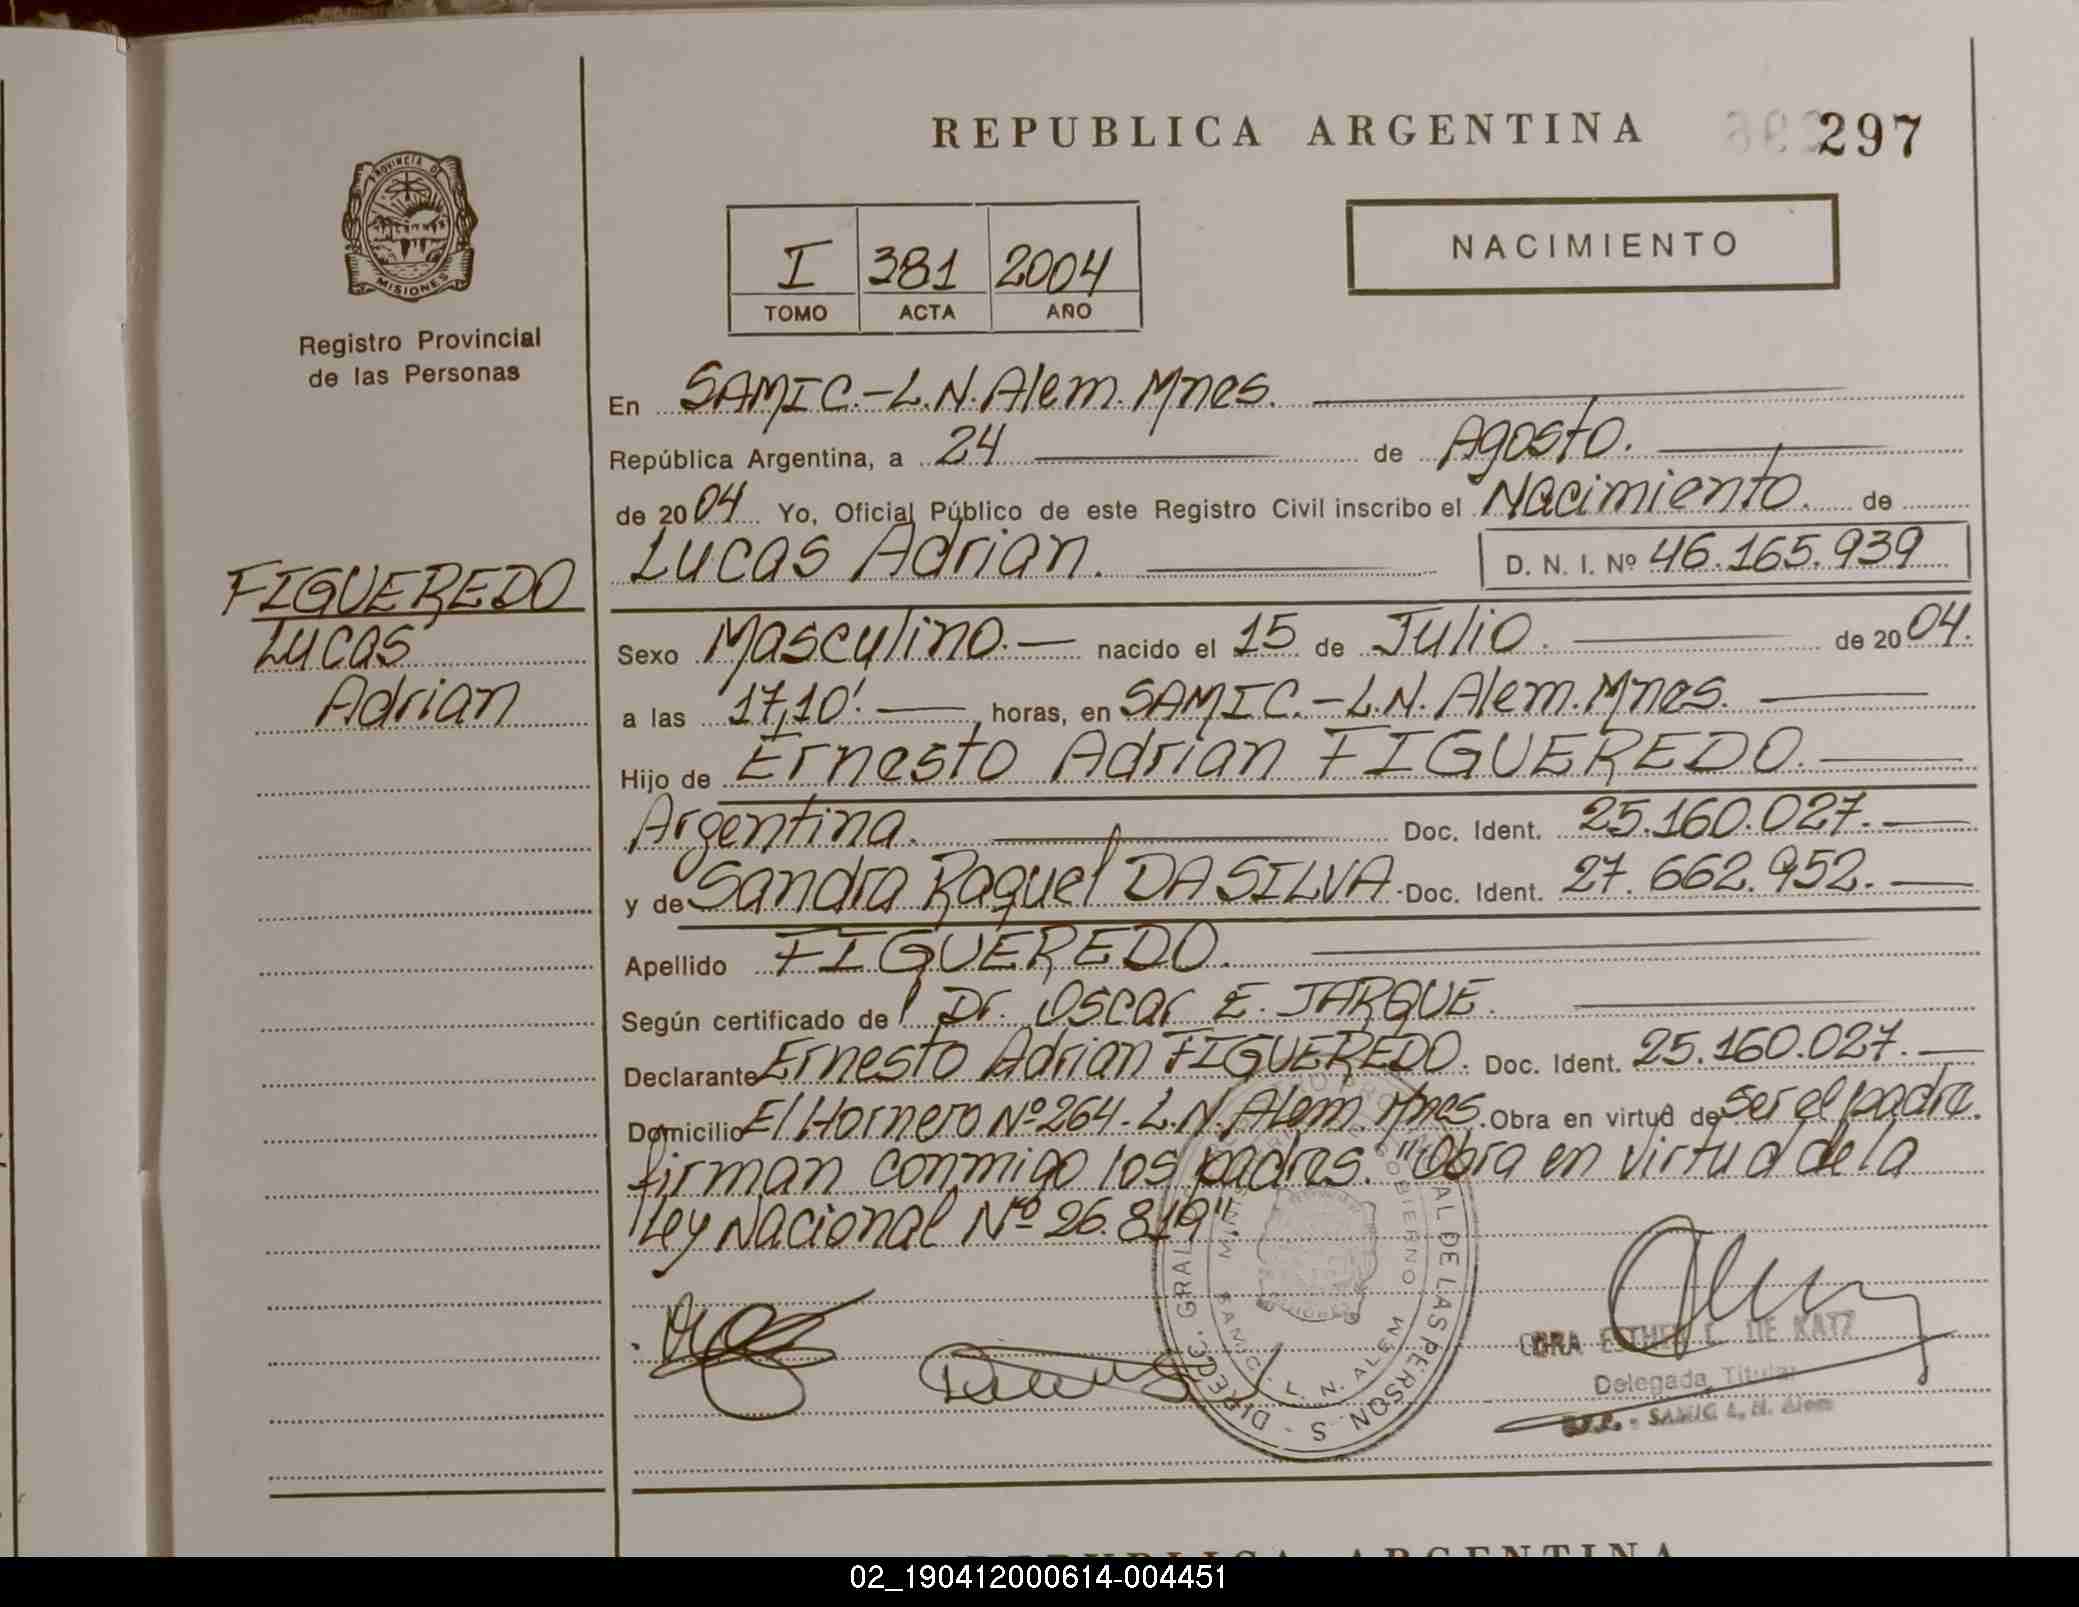 REPUBLICA ARGENTINA
297
PROVINCIA DE
MISIONES
Registro Provincial
de las Personas
I 381 2004
TOMO ACTA AÑO
NACIMIENTO
En SAMIC.-L.N.Alem.Mnes.
República Argentina, a 24 de Agosto.
de 2004 Yo, Oficial Público de este Registro Civil inscribo el Nacimiento. de
Lucas Adrian. D. N. I. Nº 46.165.939
FIGUEREDO
Lucas
Adrian
Sexo Masculino.- nacido el 15 de Julio. de 2004.
a las 17,10'. horas, en SAMIC.-L.N.Alem.Mnes.
Hijo de Ernesto Adrian FIGUEREDO.
Argentina. Doc. Ident. 25.160.027.-
y de Sandra Raquel DA SILVA.- Doc. Ident. 27.662.952.-
Apellido FIGUEREDO.
Según certificado de Dr. Oscar E. JARQUE.
Declarante Ernesto Adrian FIGUEREDO. Doc. Ident. 25.160.027.-
Domicilio El Hornero Nº264-L.N.Alem.Mnes. Obra en virtud de ser el padre.
firman conmigo los padres. "Obra en virtud de la
Ley Nacional Nº 26.819".
DIREC. GRAL AL DE LAS PERSON S
GOBIERNO
SAMIC. L. N. ALEM
ESTHER DE KATZ
Delegada Titular
SAMIC L. N. Alem
REPUBLICA ARGENTINA
02_190412000614-004451